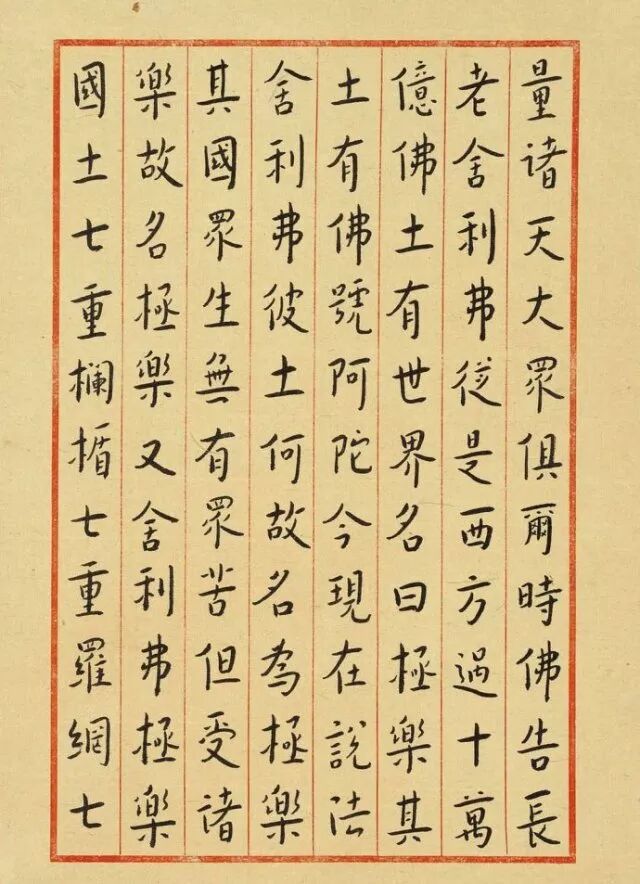 量諸天大眾俱爾時佛告長
老舍利弗從是西方過十萬
億佛土有世界名曰極樂其
土有佛號阿陀今現在說法
舍利弗彼土何故名為極樂
其國眾生無有眾苦但受諸
樂故名極樂又舍利弗極樂
國土七重欄楯七重羅網七